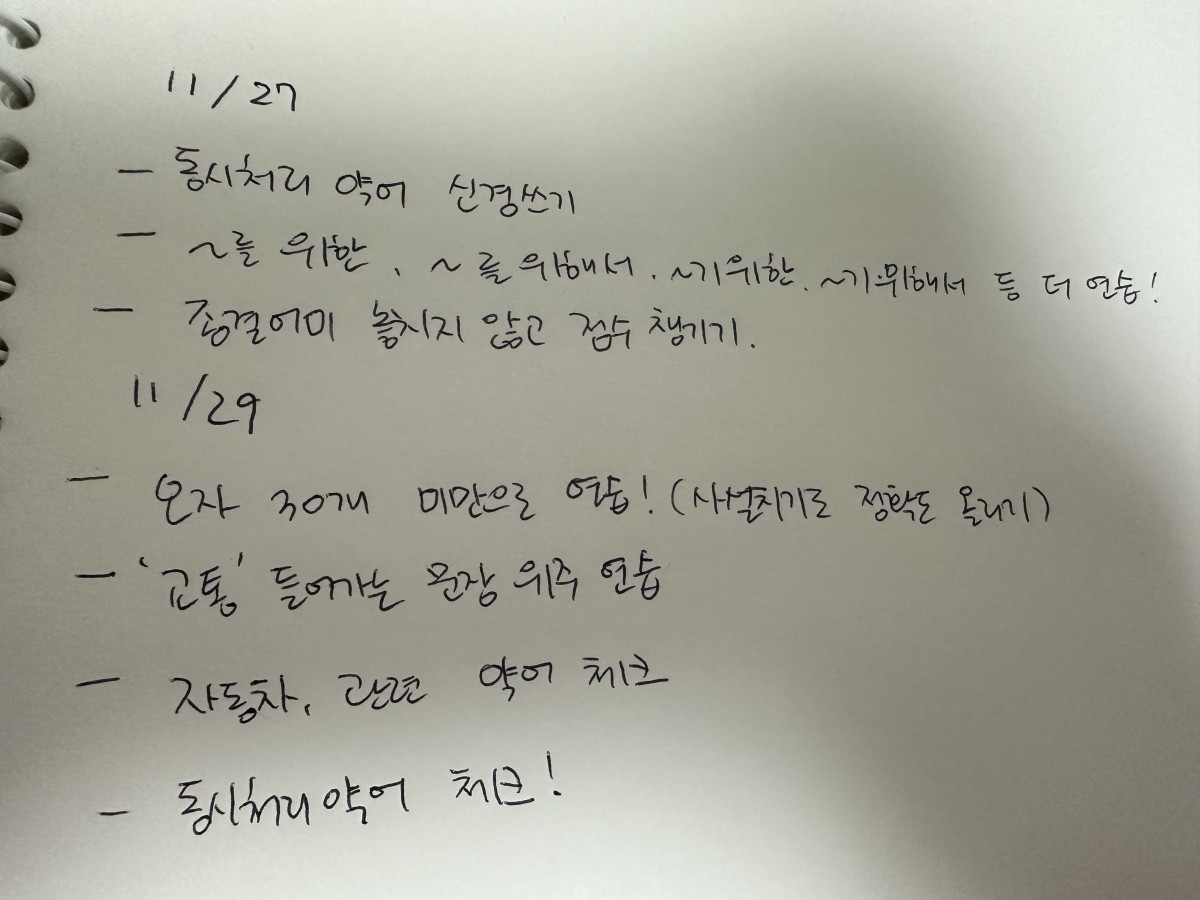 11/27
- 동시처리 약어 신경쓰기
- ~를 위한, ~를 위해서, ~기위한, ~기위해서 등 더 연습!
- 종결어미 놓치지 않고 점수 챙기기.
11/29
- 오자 30개 미만으로 연습! (사설치기로 정확도 올리기)
- '교통' 들어가는 문장 위주 연습
- 자동차, 관련 약어 체크
- 동시처리약어 체크!